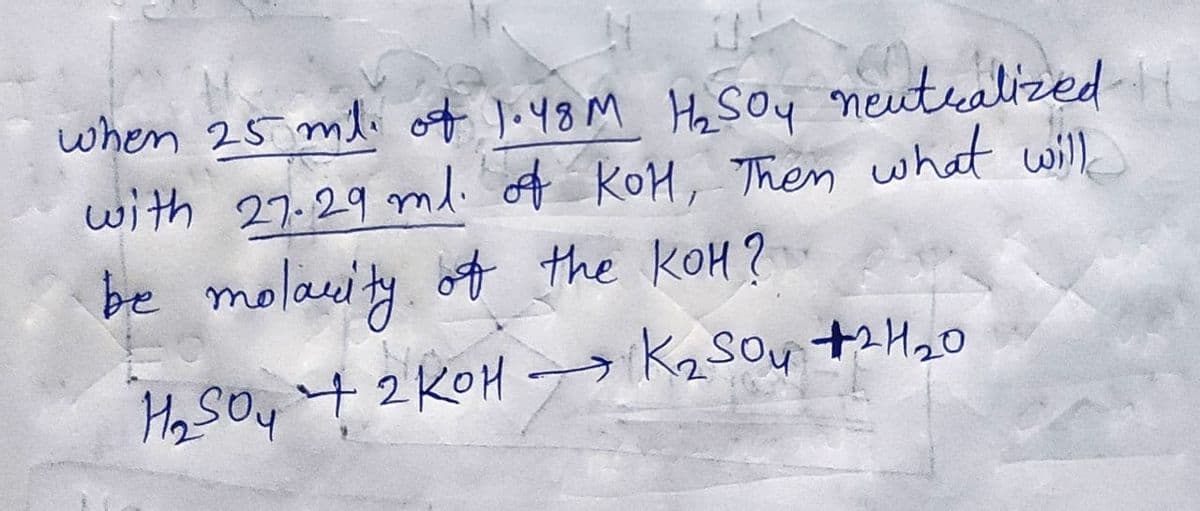 when 25 ml. of 1.48M H₂SO₄ neutralized
with 27.29 ml. of KOH, Then what will
be molarity of the KOH?
H₂SO₄ + 2KOH → K₂SO₄ +2H₂O